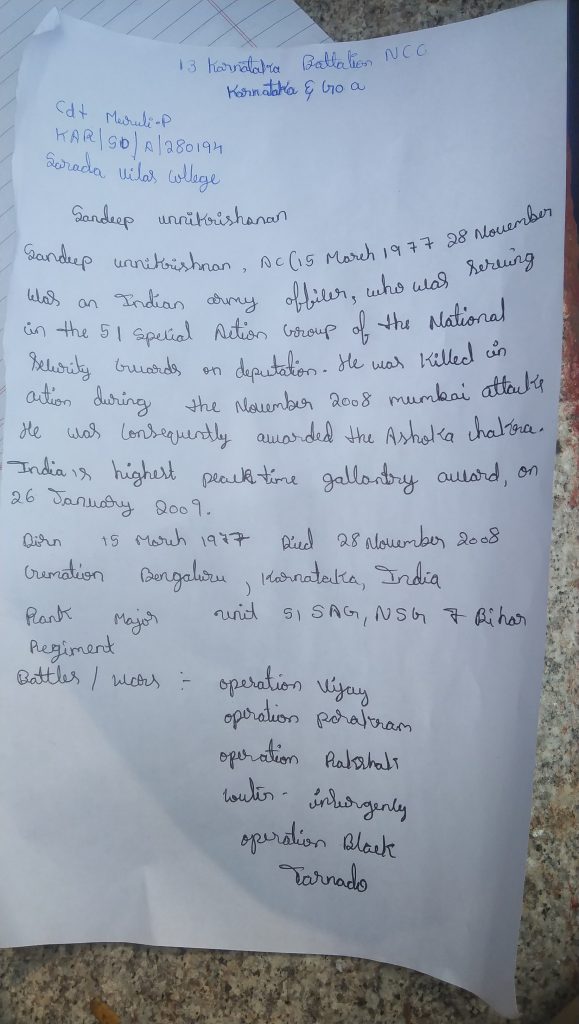 13 Karnataka Battation NCC
Karnataka & Goa
Cdt Muruli-P
KAR/SD/A/280194
Sarada vilas college
Sandeep unnikrishanan
Sandeep unnikrishnan, AC(15 March 1977 28 November
was an Indian army officer, who was serving
in the 51 special Action Group of the National
Security Guards on deputation. He was killed in
action during the November 2008 mumbai attacks
He was consequently awarded the Ashoka chakra.
India is highest peacetime gallantry award, on
26 January 2009.
Birn 15 March 1977 Died 28 November 2008
Cremation Bengaluru, Karnataka, India
Rank Major unit 51 SAG, NSG 7 Bihar
Regiment
Battles / wars :- operation vijay
operation parakram
operation Rakshak
counter - insurgency
operation Black
Tarnado